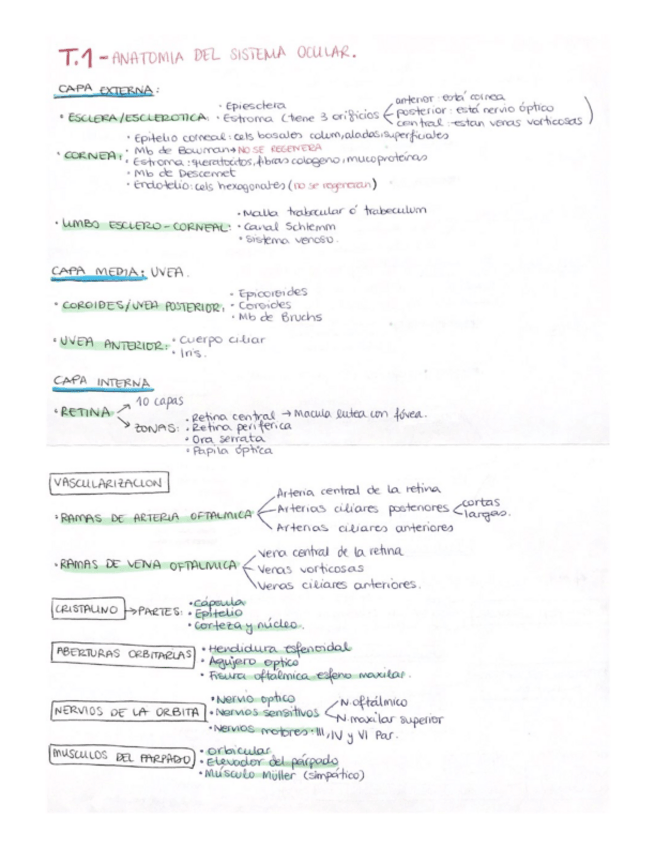 T.1 - ANATOMIA DEL SISTEMA OCULAR.
CAPA EXTERNA:
· ESCLERA/ESCLEROTICA: · Epiesclera
· Estroma (tiene 3 orificios
anterior: está cornea
posterior: está nervio óptico
central: estan venas vorticosas)
· CORNEA: · Epitelio corneal: cels basales column, aladas, superficiales
· Mb de Bowman → NO SE REGENERA
· Estroma: queratocitos, fibras colageno, mucoproteinas
· Mb de Descemet
· Endotelio: cels hexagonales (no se regeneran)
· LIMBO ESCLERO-CORNEAL: · Malla trabecular ó trabeculum
· Canal Schlemm
· Sistema venoso.
CAPA MEDIA: UVEA.
· COROIDES/UVEA POSTERIOR: · Epicoroides
· Coroides
· Mb de Bruchs
· UVEA ANTERIOR: · Cuerpo ciliar
· Iris.
CAPA INTERNA
· RETINA → 10 capas
→ ZONAS: · Retina central → Macula lutea con fóvea.
· Retina periferica
· Ora serrata
· Papila óptica
VASCULARIZACION
· RAMAS DE ARTERIA OFTALMICA
Arteria central de la retina
Arterias ciliares posteriores
cortas
largas.
Arterias ciliares anteriores
· RAMAS DE VENA OFTALMICA
Vena central de la retina
Venas vorticosas
Venas ciliares anteriores.
CRISTALINO → PARTES: · Cápsula
· Epitelio
· Corteza y núcleo.
ABERTURAS ORBITARIAS · Hendidura esfenoidal
· Agujero optico
· Fisura oftalmica esfeno maxilar.
NERVIOS DE LA ORBITA · Nervio optico
· Nervios sensitivos
N. oftálmico
N. maxilar superior
· Nervios motores: III, IV y VI Par.
MUSCULOS DEL PARPADO · Orbicular
· Elevador del párpado
· Músculo Müller (simpático)